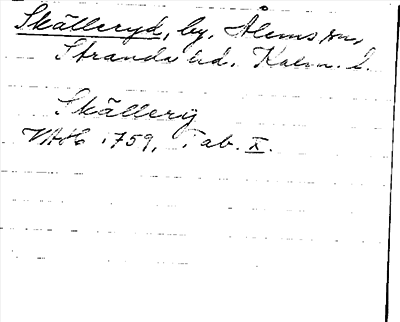 Skälleryd, by, Ålems sn,
Stranda hd. Kalm. l.
Skällery
VAH 1759, Tab. X.